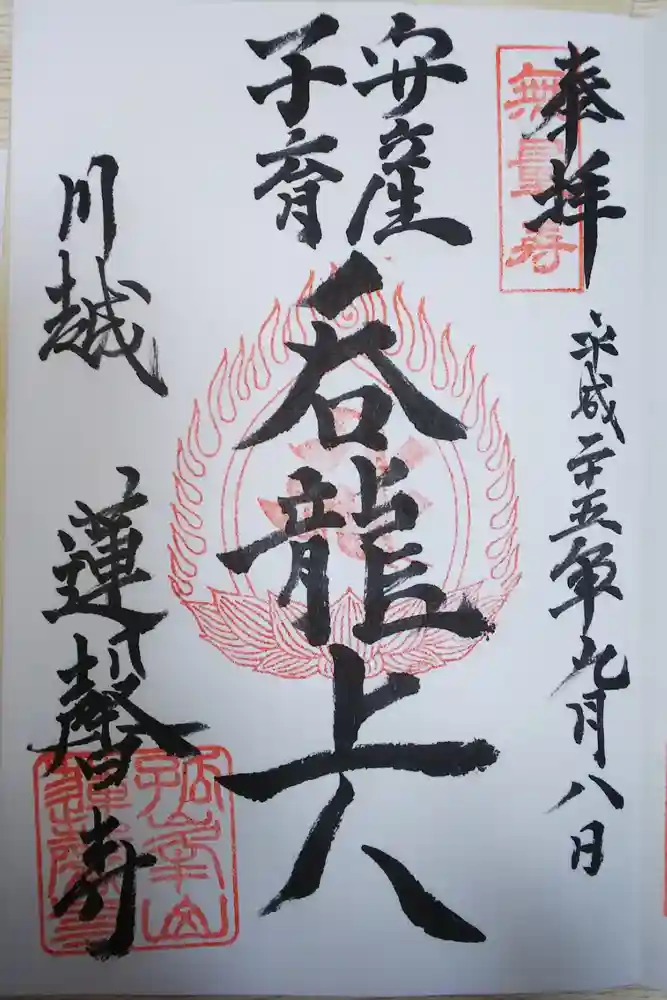 奉拝
無量寿
平成二十五年九月八日
安産
子育
呑龍上人
川越　蓮馨寺
孤峯山
蓮馨寺